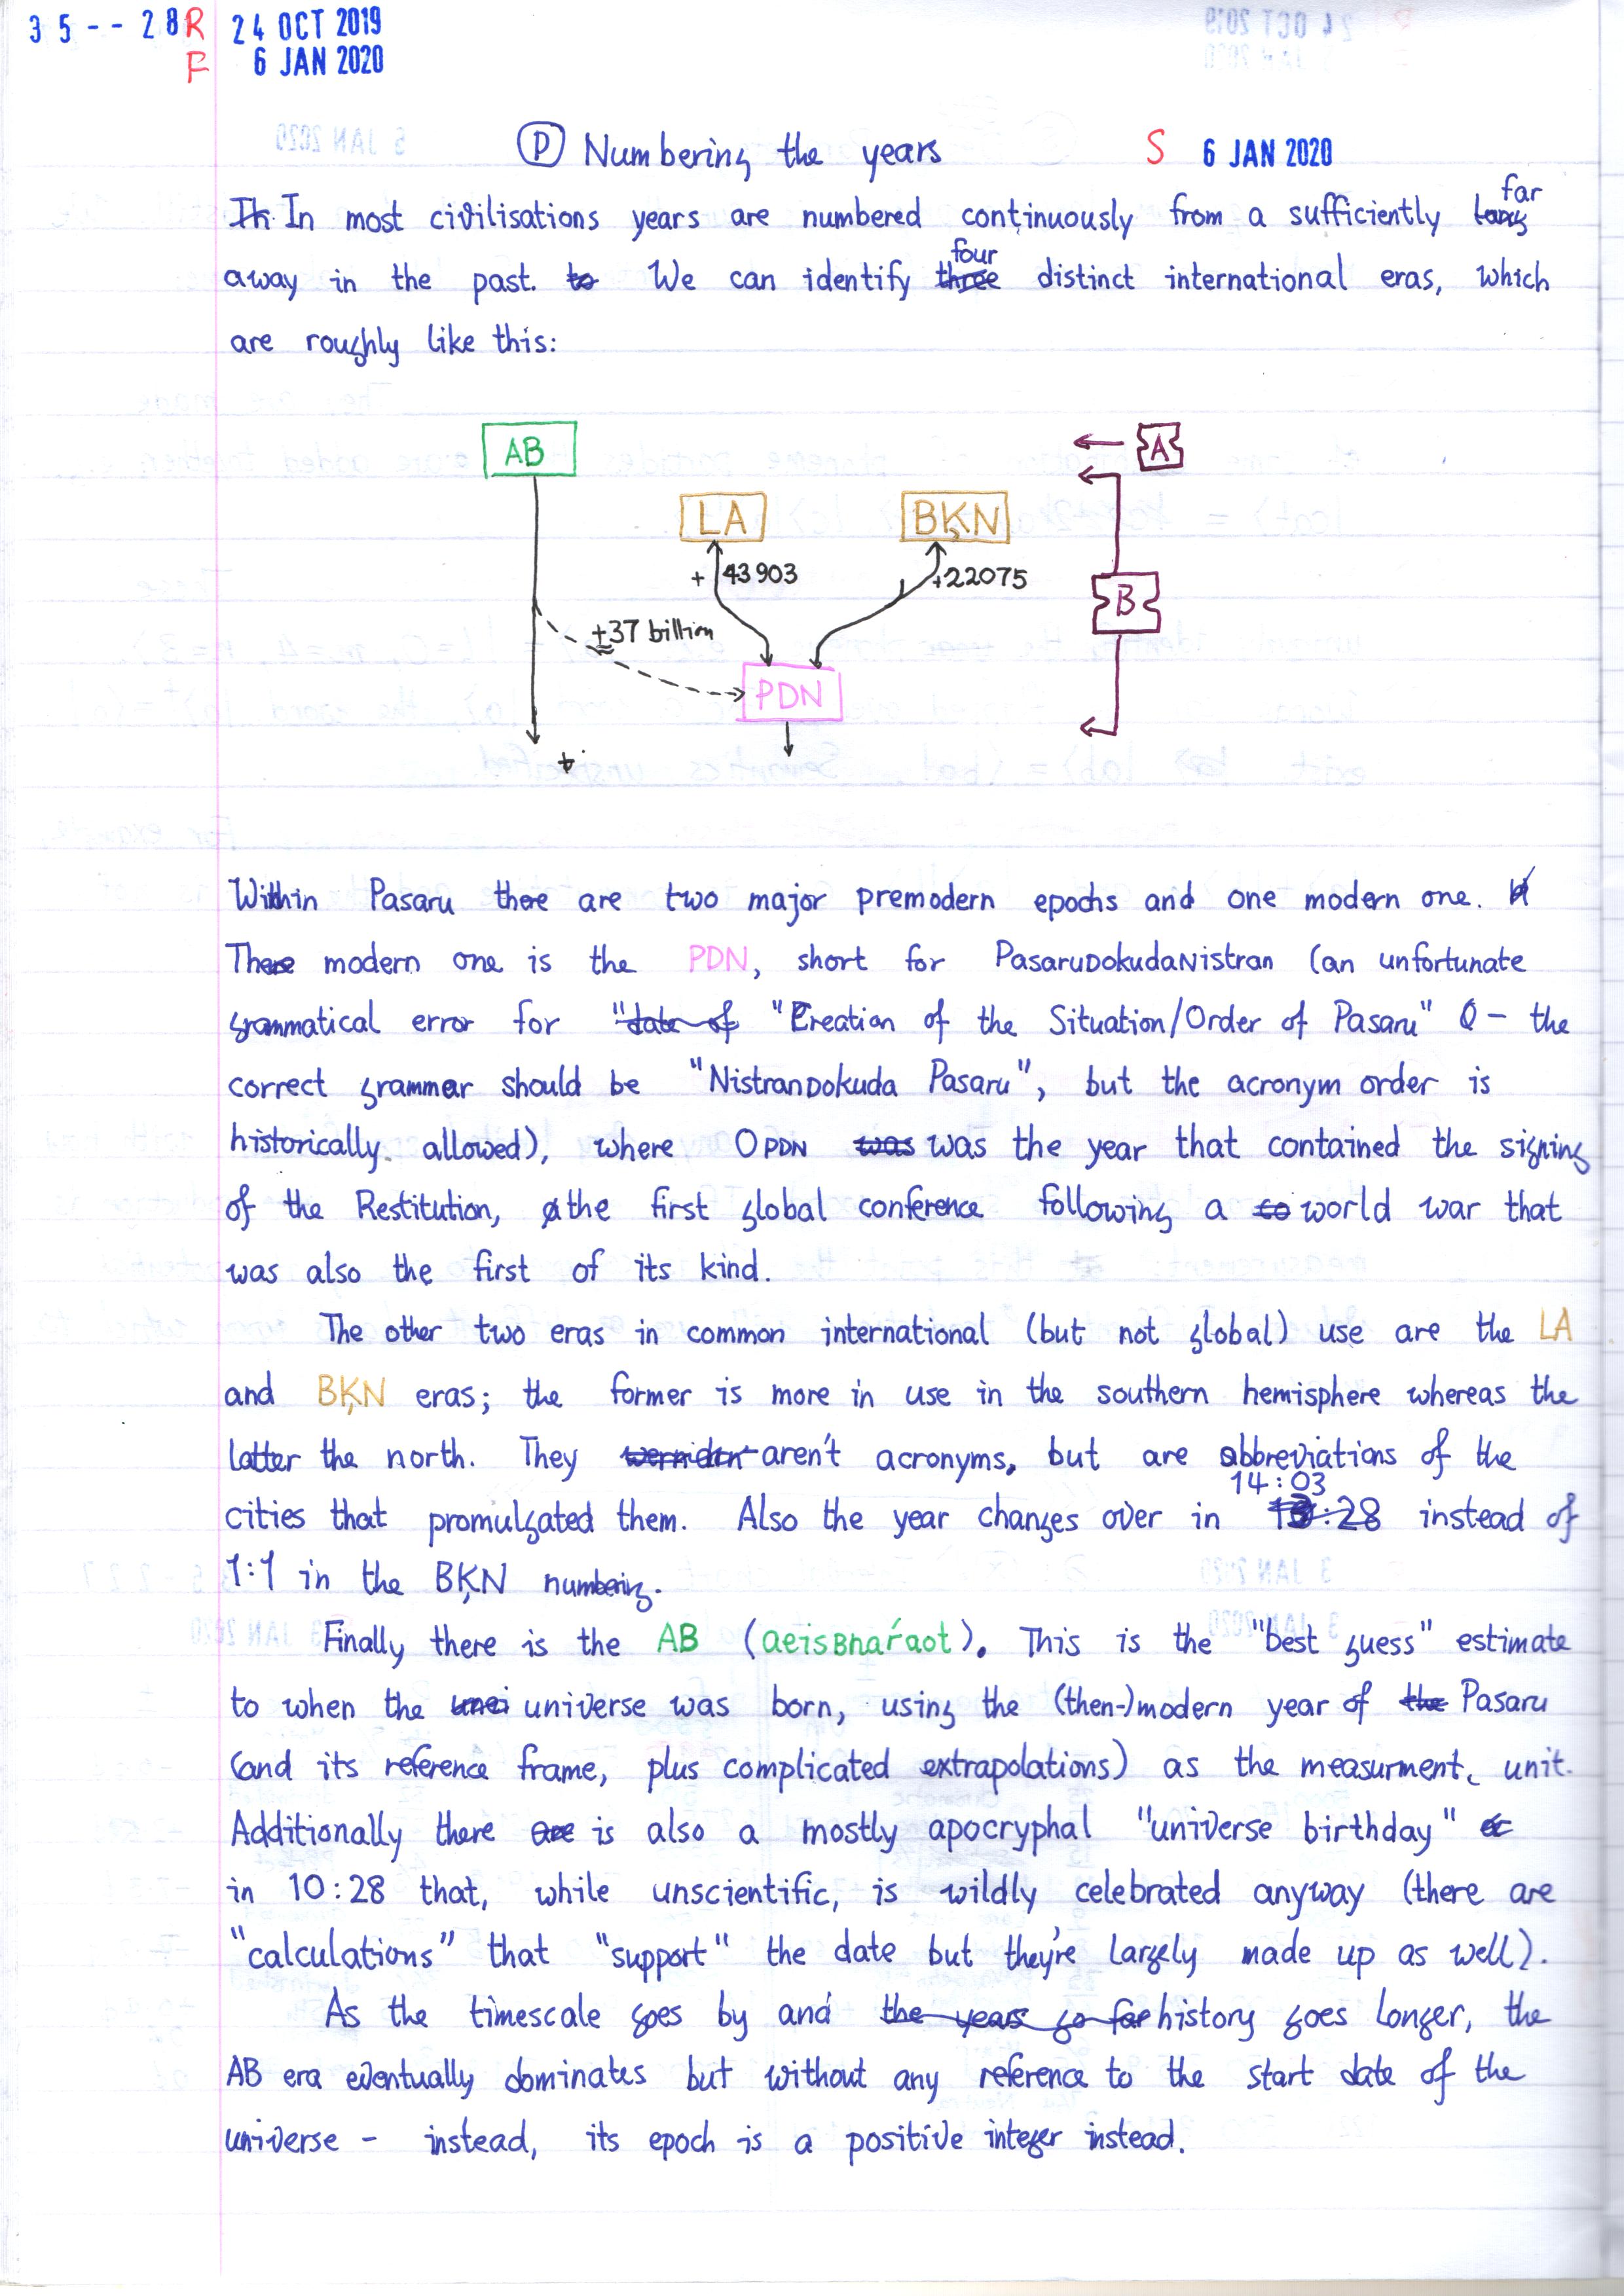 35--28R 24 OCT 2019
F 6 JAN 2020
P Numbering the years S 6 JAN 2020
In most civilisations years are numbered continuously from a sufficiently far
away in the past. We can identify four distinct international eras, which
are roughly like this:
AB
LA
BĶN
A
+ 43903
+22075
B
±37 billion
PDN
+
Within Pasaru there are two major premodern epochs and one modern one.
The modern one is the PDN, short for PasaruDokudaNistran (an unfortunate
grammatical error for "Creation of the Situation/Order of Pasaru" – the
correct grammar should be "NistranDokuda Pasaru", but the acronym order is
historically allowed), where 0 PDN was the year that contained the signing
of the Restitution, the first global conference following a world war that
was also the first of its kind.
The other two eras in common international (but not global) use are the LA
and BĶN eras; the former is more in use in the southern hemisphere whereas the
latter the north. They aren't acronyms, but are abbreviations of the
cities that promulgated them. Also the year changes over in 14:03 instead of
1:1 in the BĶN numbering.
Finally there is the AB (aeisBnaŕaot). This is the "best guess" estimate
to when the universe was born, using the (then-)modern year of Pasaru
(and its reference frame, plus complicated extrapolations) as the measurment unit.
Additionally there is also a mostly apocryphal "universe birthday"
in 10:28 that, while unscientific, is wildly celebrated anyway (there are
"calculations" that "support" the date but they're largely made up as well).
As the timescale goes by and history goes longer, the
AB era eventually dominates but without any reference to the start date of the
universe – instead, its epoch is a positive integer instead.